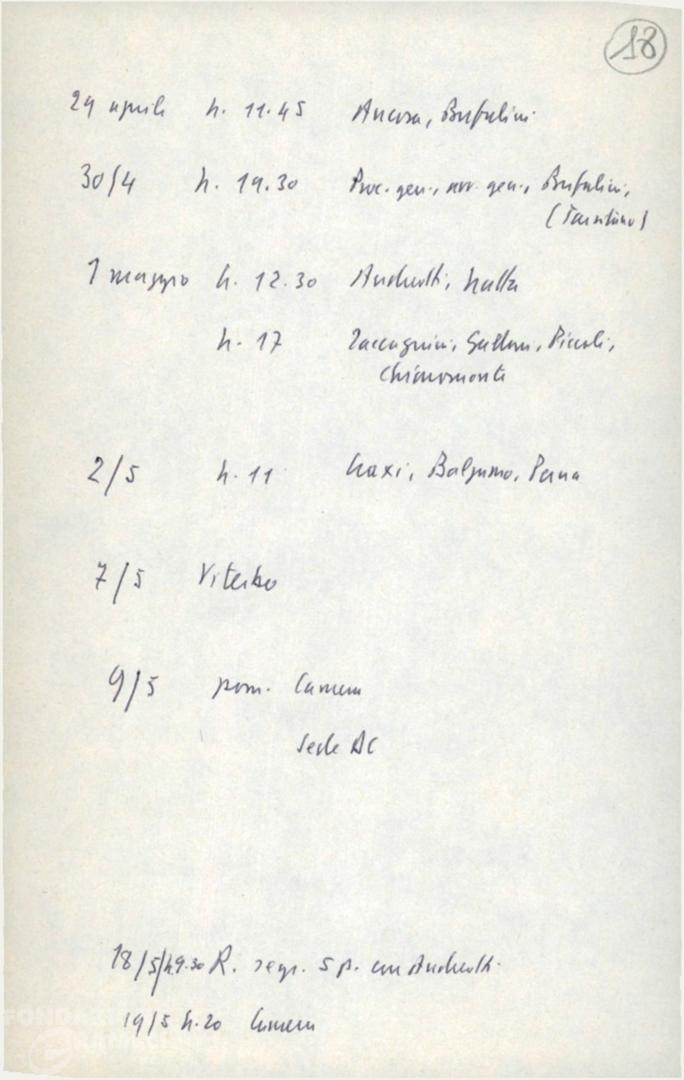 18
29 aprile h. 11.45 Ancora, Bufalini
30/4 h. 19.30 Proc. gen., avv. gen., Bufalini,
(Tarantino)
1 maggio h. 12.30 Andreotti, Natta
h. 17 Zaccagnini, Galloni, Piccoli,
Chiaromonte
2/5 h. 11 Craxi, Balzamo, Perna
7/5 Viterbo
9/5 pom. Camera
Sede AC
18/5/h 9.30 R. segr. 5 p. con Andreotti
19/5 h. 20 Camera
FONDAZIONE
GRAMSCI